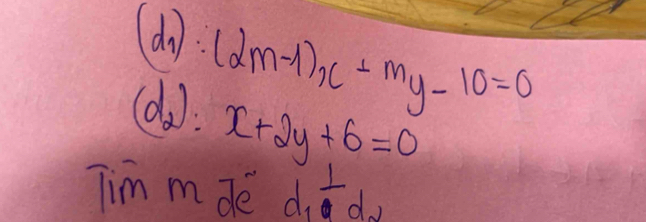 (d₁): (2m-1)x + my - 10=0
(d₂): x+2y+6=0
Tìm m để d₁ ⊥ d₂